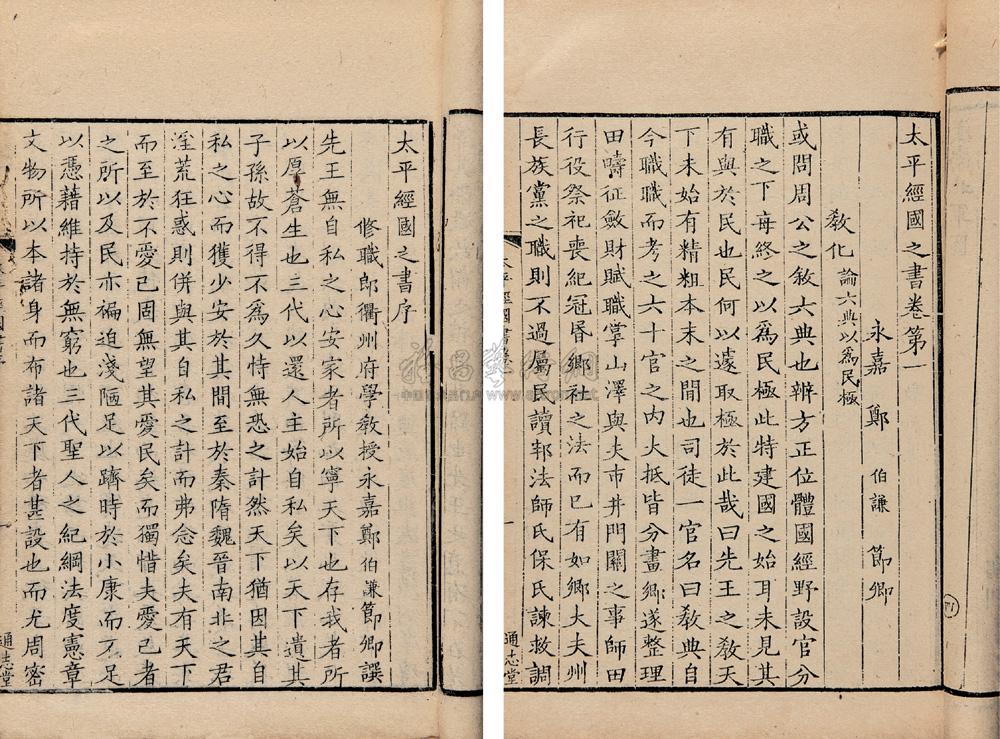 太平經國之書序
修職郎衢州府學教授永嘉鄭伯謙節卿譔
先王無自私之心安家者所以寧天下也存我者所
以厚蒼生也三代以還人主始自私矣以天下遺其
子孫故不得不爲久特無恐之計然天下猶因其自
私之心而獲少安於其間至於秦隋魏晉南北之君
淫荒狂惑則併與其自私之計而弗念矣夫有天下
而至於不愛己固無望其愛民矣而獨惜夫愛己者
之所以及民亦褊迫淺陋足以躋時於小康而不足
以憑藉維持於無窮也三代聖人之紀綱法度憲章
文物所以本諸身而布諸天下者甚設也而尤周密
通志堂
太平經國之書卷第一
永嘉 鄭 伯謙 節卿
敎化 論六典以爲民極
或問周公之敘六典也辨方正位體國經野設官分
職之下每終之以爲民極此特建國之始耳未見其
有與於民也民何以遽取極於此哉曰先王之敎天
下未始有精粗本末之間也司徒一官名曰敎典自
今職職而考之六十官之內大抵皆分畫鄉遂整理
田疇征斂財賦職掌山澤與夫市井門關之事師田
行役祭祀喪紀冠昏鄉社之法而已有如鄉大夫州
長族黨之職則不過屬民讀邦法師氏保氏諫救調
通志堂